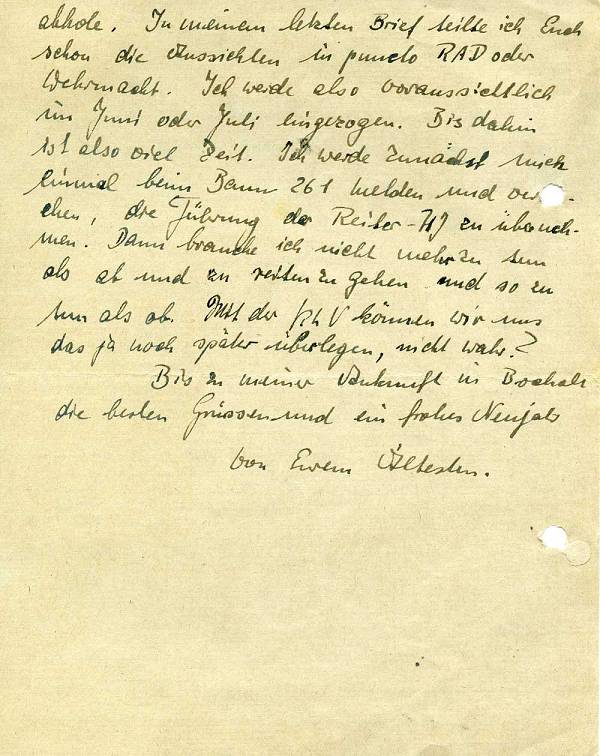 abhole. In meinem letzten Brief teilte ich Euch
schon die Aussichten in puncto RAD oder
Wehrmacht. Ich werde also voraussichtlich
im Juni oder Juli eingezogen. Bis dahin
ist also viel Zeit. Ich werde zunächst mich
einmal beim Bann 261 melden und versu-
chen, die Führung der Reiter-HJ zu überneh-
men. Dann brauche ich nicht mehr zu tun
als ab und zu reiten zu gehen und so zu
tun als ob. Mit der können wir uns
das ja noch später überlegen, nicht wahr?
Bis zu meiner Ankunft in Bocholt
die besten Grüssen und ein frohes Neujahr
von Eurem Ältesten.